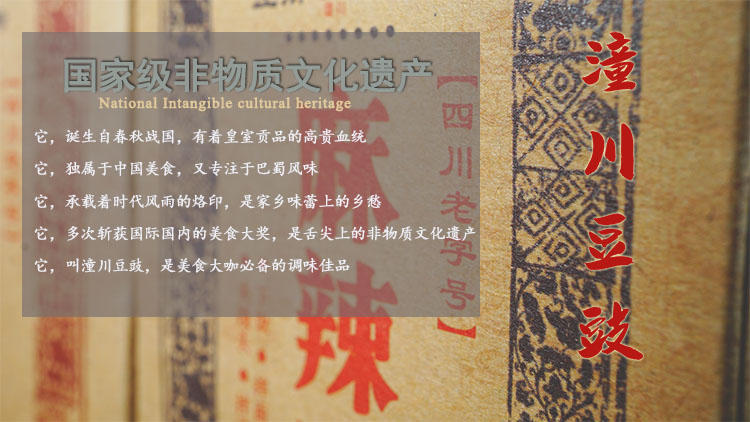 国家级非物质文化遗产
National Intangible cultural heritage
它，诞生自春秋战国，有着皇室贡品的高贵血统
它，独属于中国美食，又专注于巴蜀风味
它，承载着时代风雨的烙印，是家乡味蕾上的乡愁
它，多次斩获国际国内的美食大奖，是舌尖上的非物质文化遗产
它，叫潼川豆豉，是美食大咖必备的调味佳品
麻辣
【四川老字号】
潼川豆豉